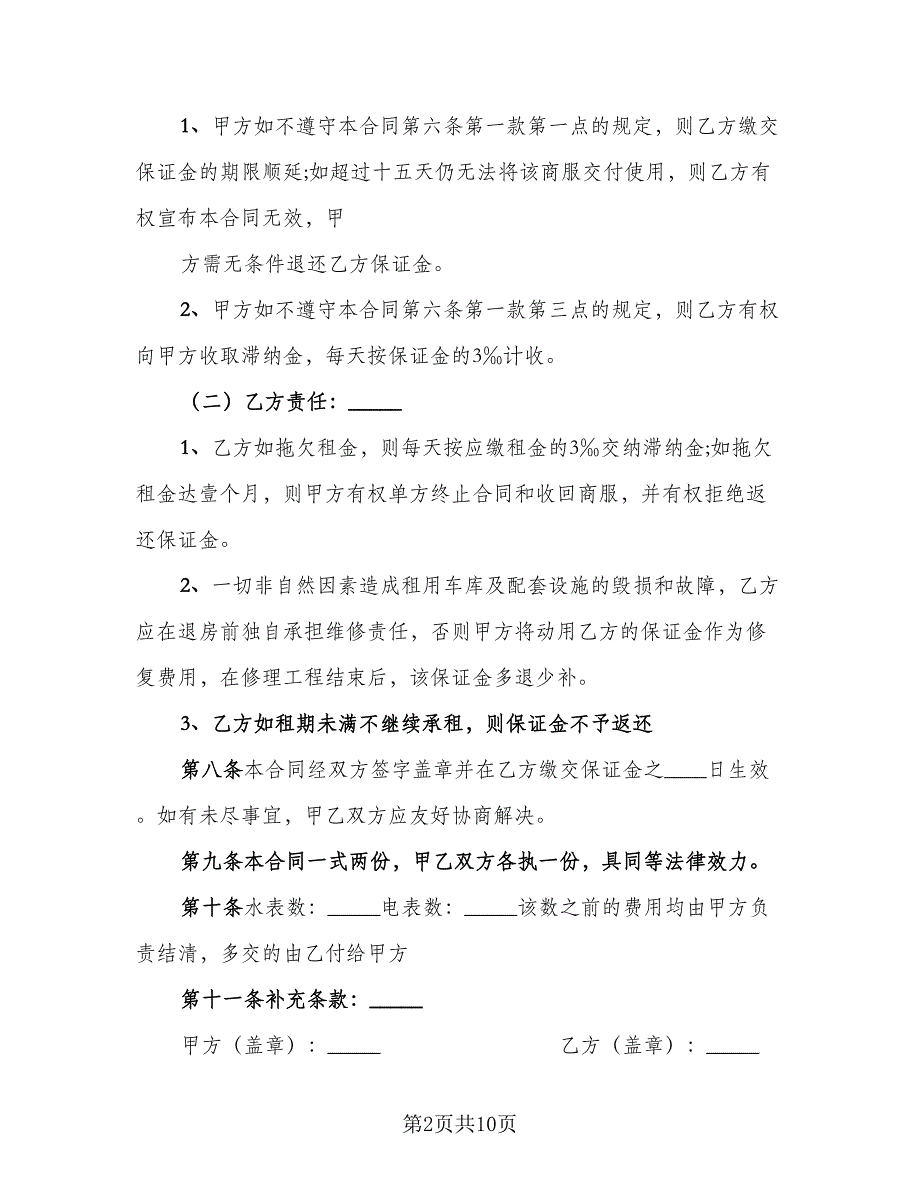 1、甲方如不遵守本合同第六条第一款第一点的规定，则乙方缴交
保证金的期限顺延;如超过十五天仍无法将该商服交付使用，则乙方有
权宣布本合同无效，甲
方需无条件退还乙方保证金。
2、甲方如不遵守本合同第六条第一款第三点的规定，则乙方有权
向甲方收取滞纳金，每天按保证金的3‰计收。
（二）乙方责任：_____
1、乙方如拖欠租金，则每天按应缴租金的3‰交纳滞纳金;如拖欠
租金达壹个月，则甲方有权单方终止合同和收回商服，并有权拒绝返
还保证金。
2、一切非自然因素造成租用车库及配套设施的毁损和故障，乙方
应在退房前独自承担维修责任，否则甲方将动用乙方的保证金作为修
复费用，在修理工程结束后，该保证金多退少补。
3、乙方如租期未满不继续承租，则保证金不予返还
第八条本合同经双方签字盖章并在乙方缴交保证金之____日生效
。如有未尽事宜，甲乙双方应友好协商解决。
第九条本合同一式两份，甲乙双方各执一份，具同等法律效力。
第十条水表数：_____电表数：_____该数之前的费用均由甲方负
责结清，多交的由乙付给甲方
第十一条补充条款：_____
甲方（盖章）：_____ 乙方（盖章）：_____
第2页共10页